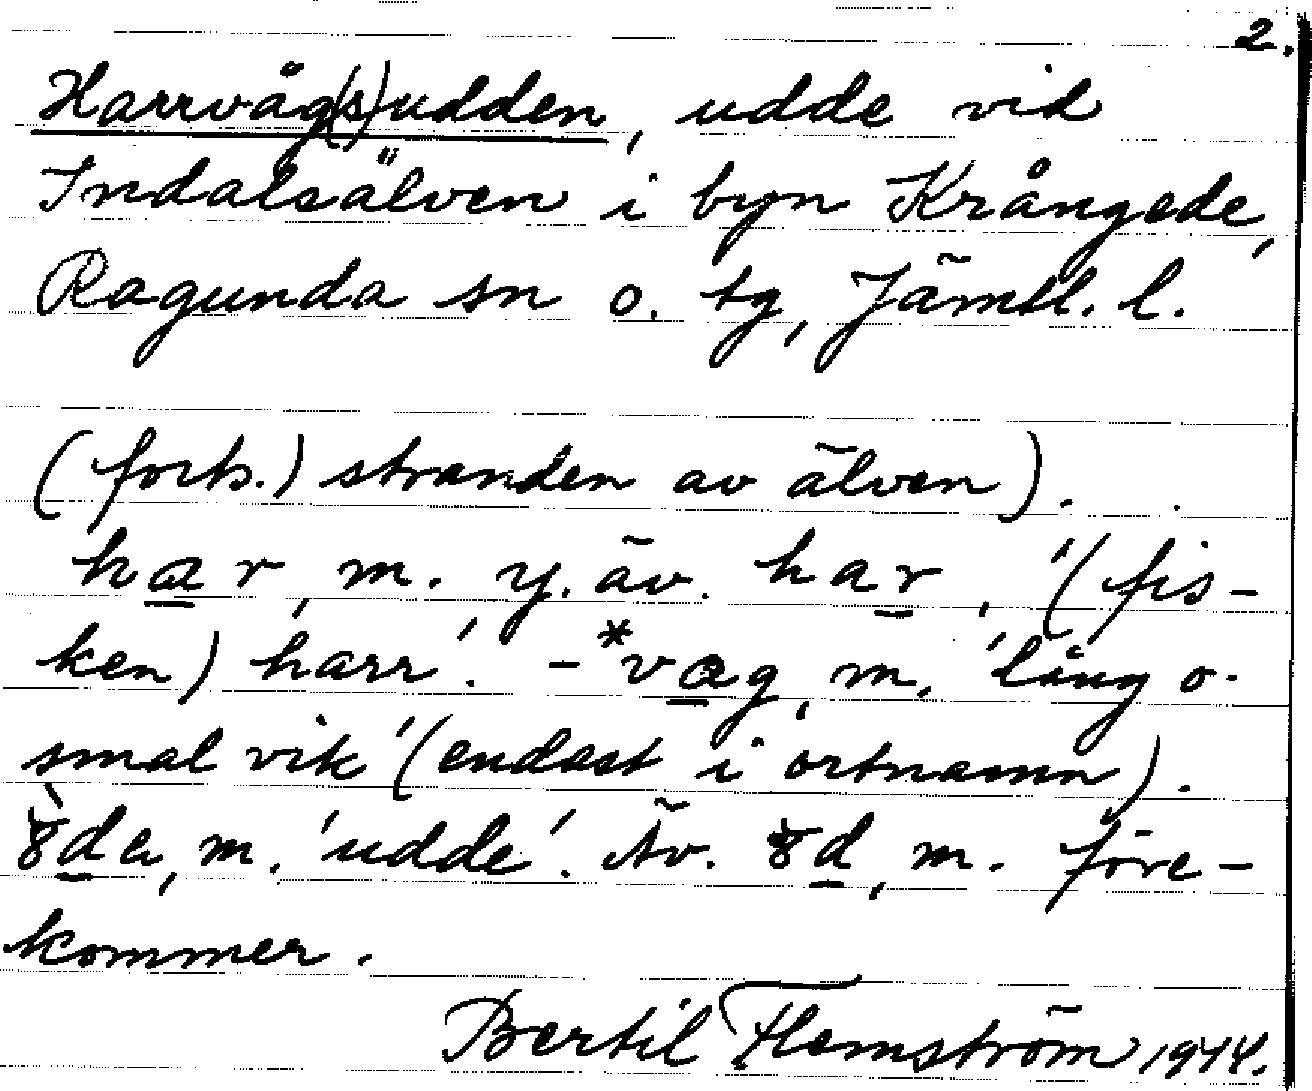 2.
Harrvåg(s)udden, udde vid
Indalsälven i byn Krångede,
Ragunda sn o. tg, Jämtl. l.
(forts.) stranden av älven).
har, m. y. äv. har, '(fis-
ken) harr'. - *vag, m. 'lång o.
smal vik' (endast i ortnamn).
m. 'udde'. Äv. m. före-
kommer.
Bertil Flemström 1944.